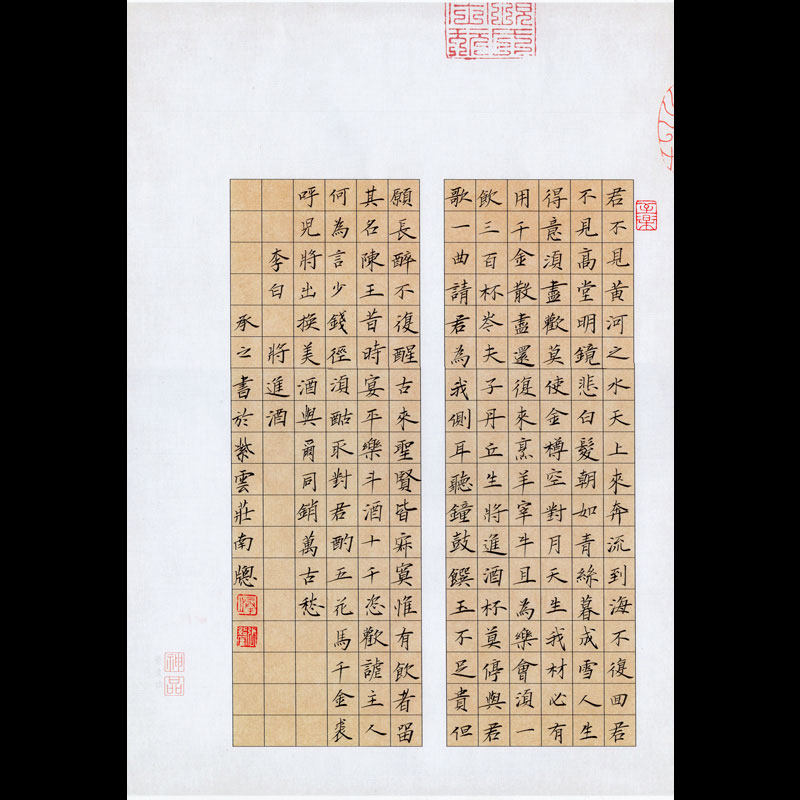 君不見黃河之水天上來奔流到海不復回君
不見高堂明鏡悲白髮朝如青絲暮成雪人生
得意須盡歡莫使金樽空對月天生我材必有
用千金散盡還復來烹羊宰牛且為樂會須一
飲三百杯岑夫子丹丘生將進酒杯莫停與君
歌一曲請君為我側耳聽鐘鼓饌玉不足貴但
願長醉不復醒古來聖賢皆寂寞惟有飲者留
其名陳王昔時宴平樂斗酒十千恣歡謔主人
何為言少錢徑須酤取對君酌五花馬千金裘
呼兒將出換美酒與爾同銷萬古愁
李白 將進酒
承之書於紫雲莊南牕
神品